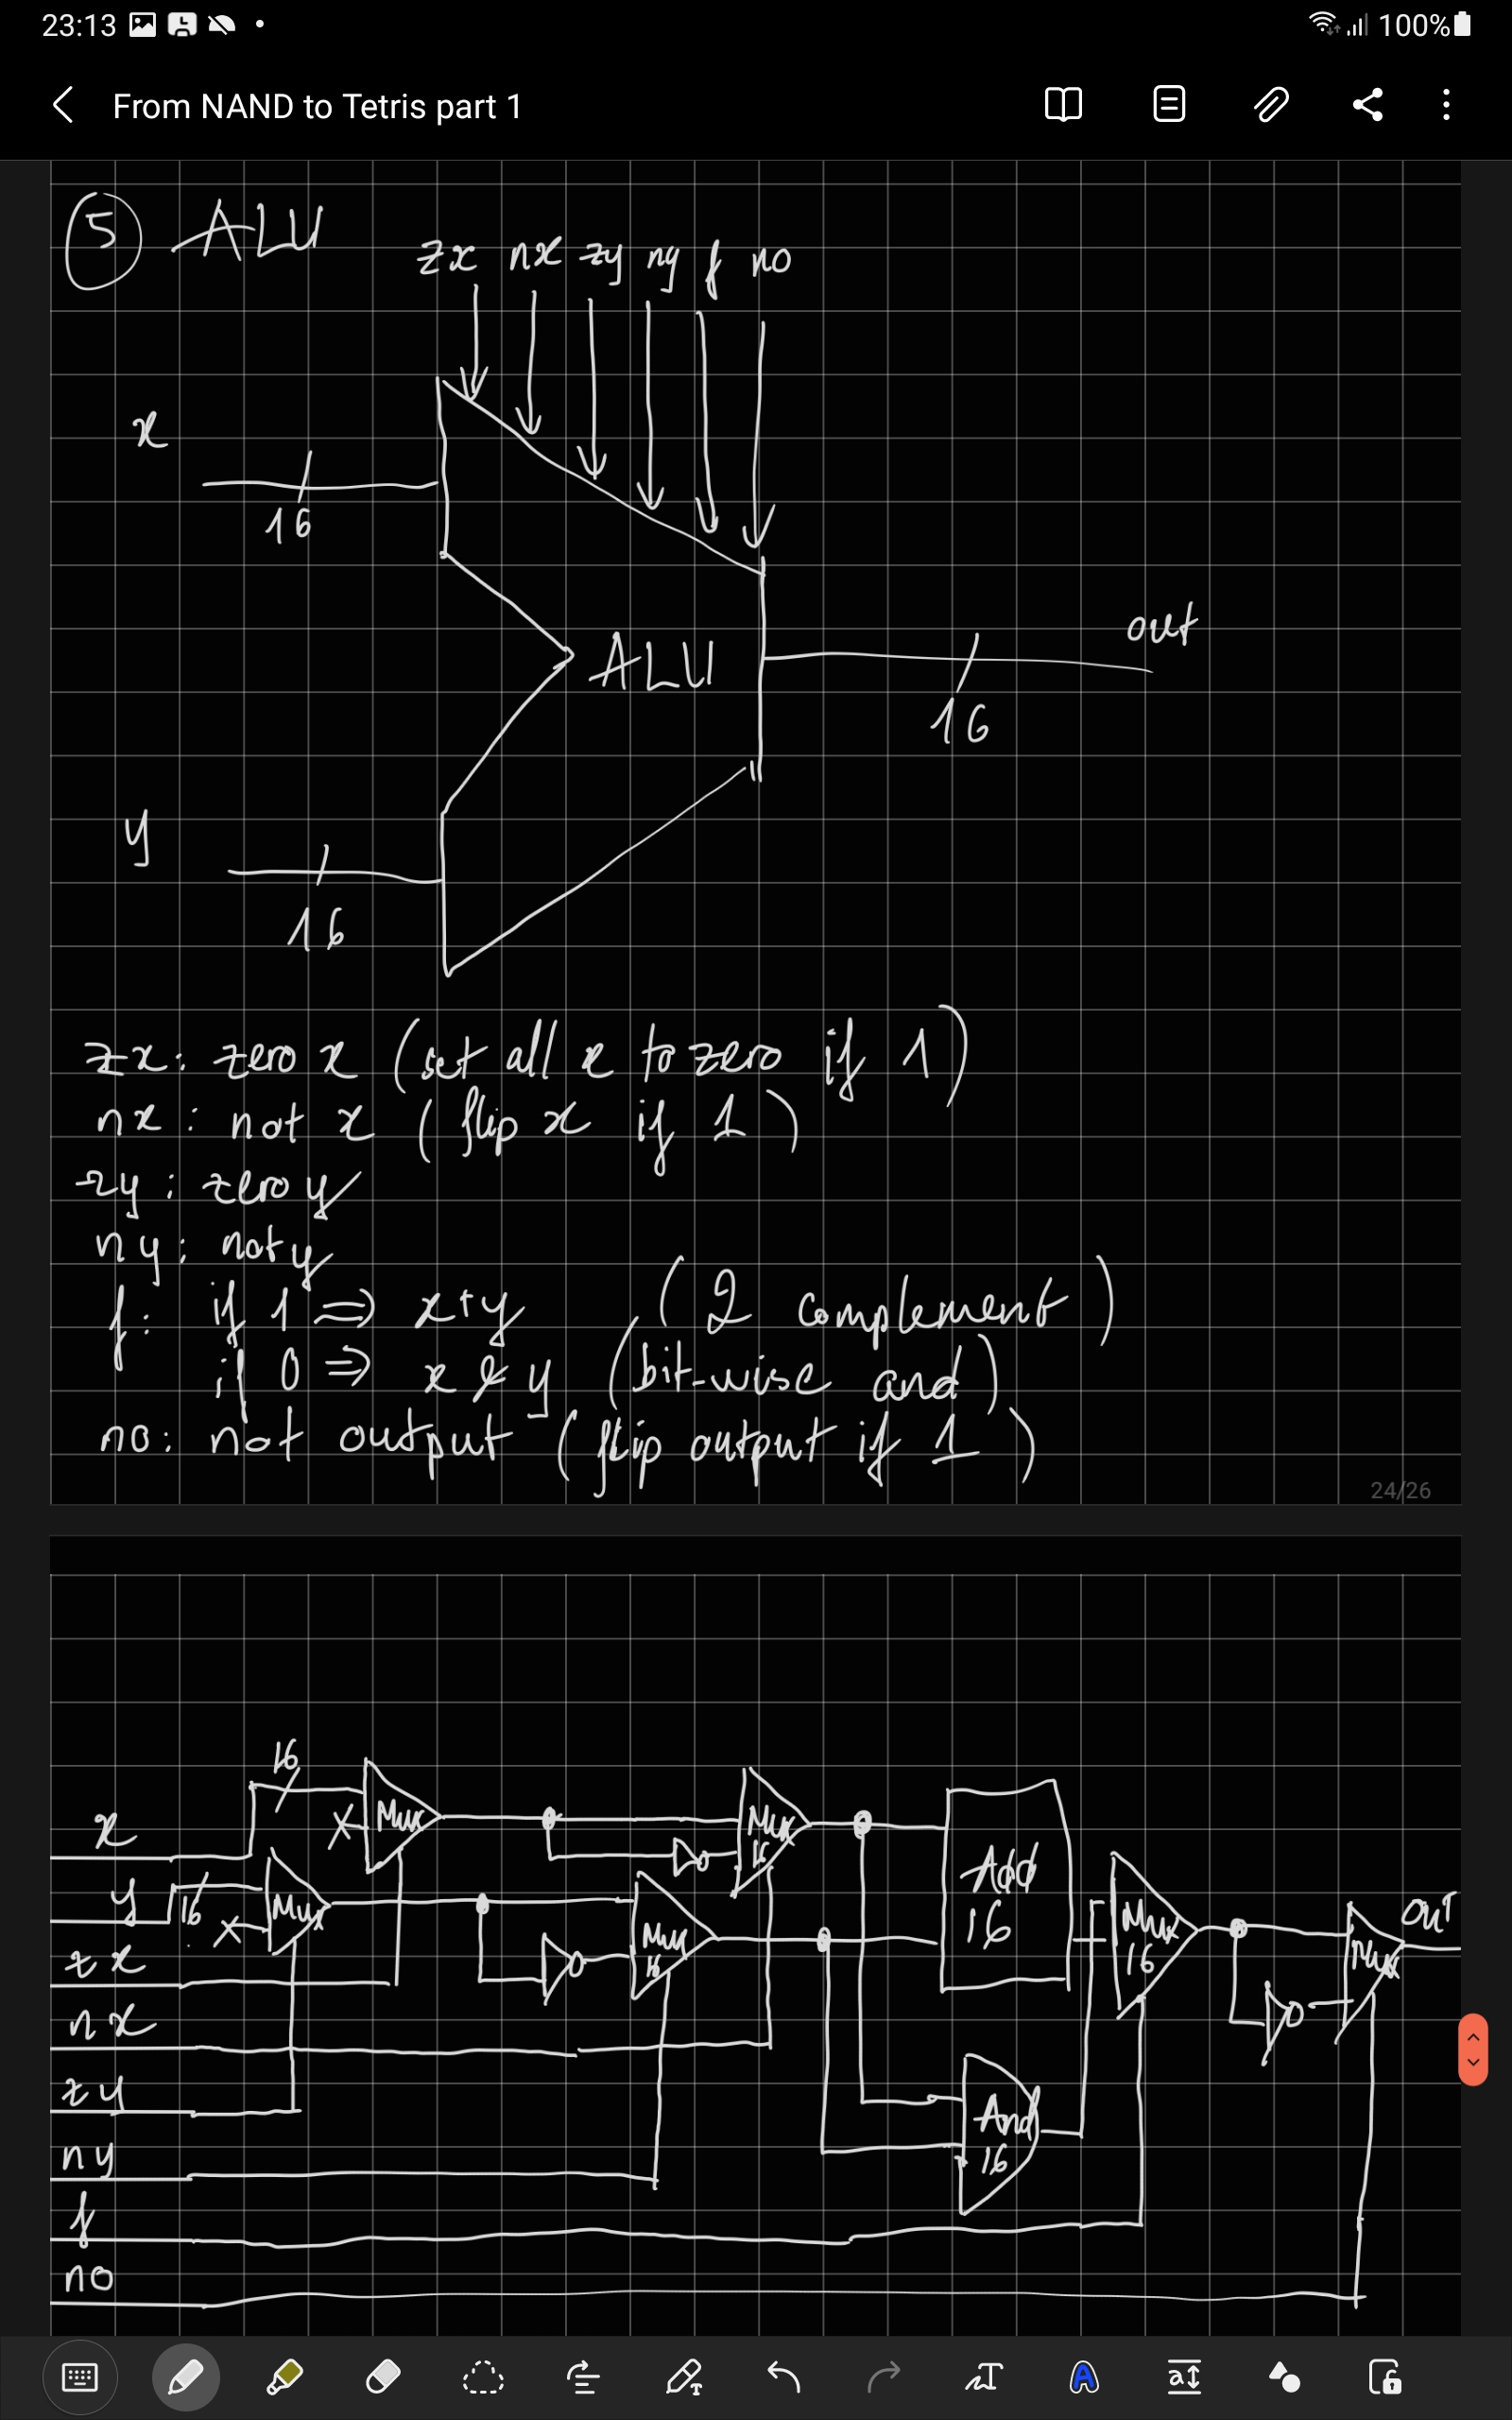 23:13 100%
From NAND to Tetris part 1
5 ALU
zx nx zy ny f no
x
16
out
ALU
16
y
16
zx: zero x (set all x to zero if 1)
nx: not x (flip x if 1)
zy: zero y
ny: not y
f: if 1 ⇒ x+y (2 complement)
if 0 ⇒ x & y (bit-wise and)
no: not output (flip output if 1)
24/26
16
x Mux Mux 16
Add 16
y 16 Mux Mux 16 Mux 16 Mux out
zx
nx
zy And 16
ny
f
no